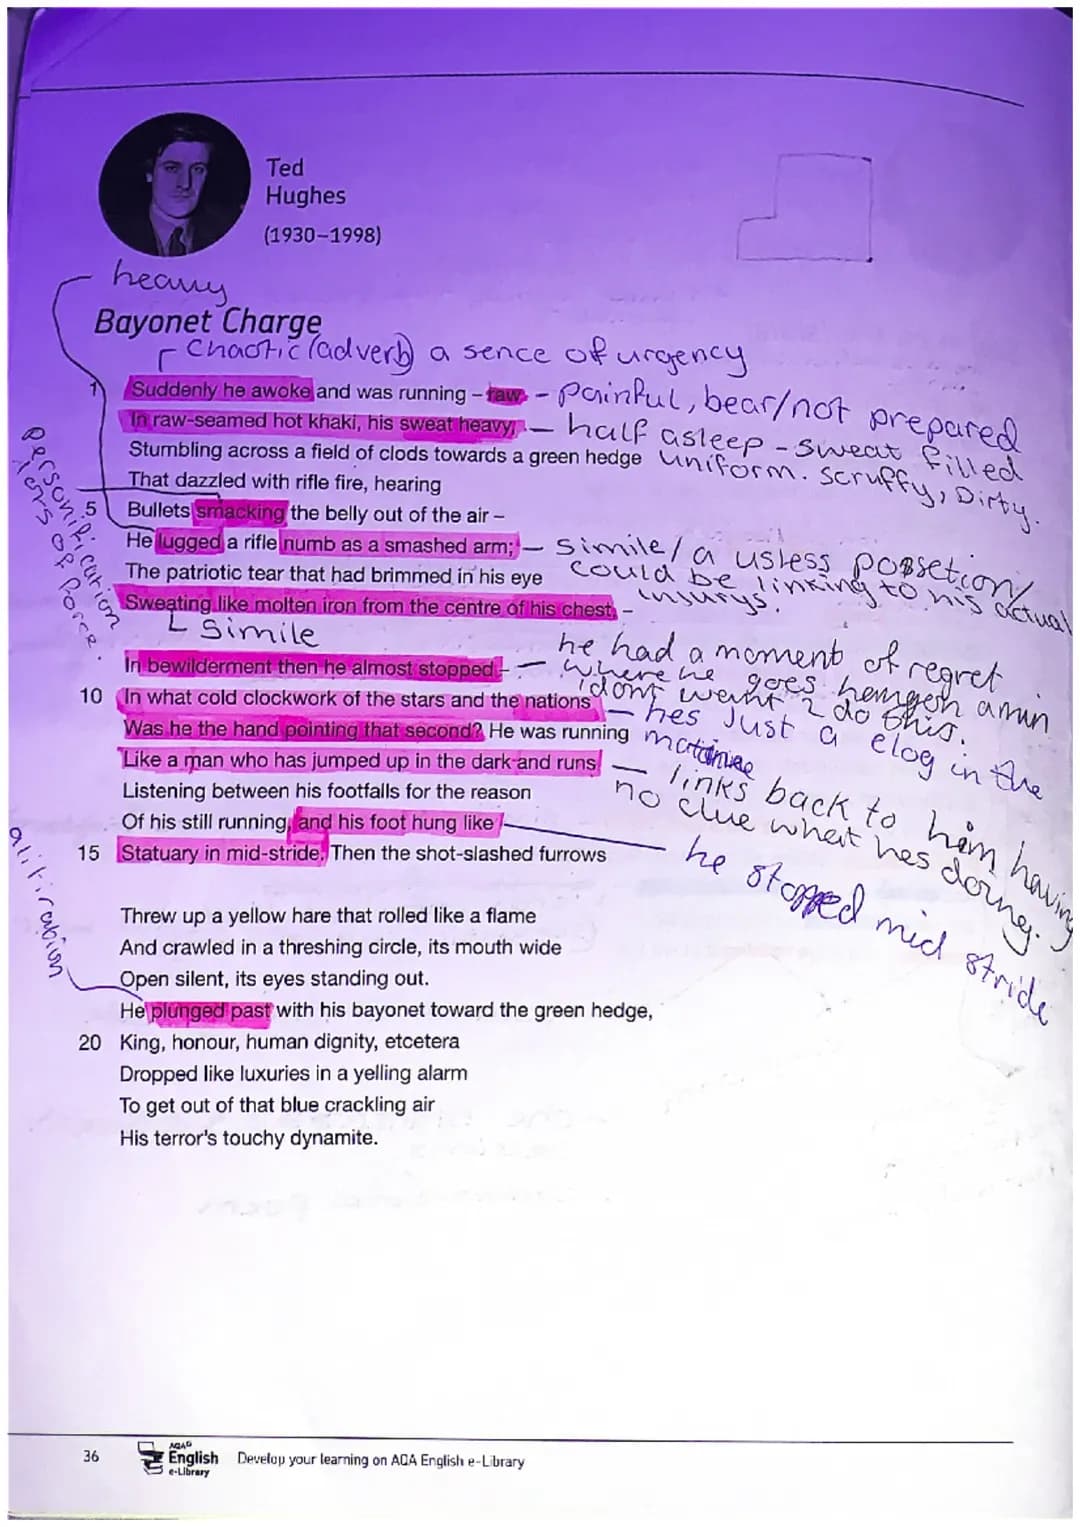 Ted
Hughes
(1930–1998)
heavy
Bayonet Charge
Chaotic (adverb) a sence of urgency
1 Suddenly he awoke and was running – raw - painful, bear/not prepared
In raw-seamed hot khaki, his sweat heavy, - half asleep - sweat filled
uniform. Scruffy, Dirty.
Stumbling across a field of clods towards a green hedge
That dazzled with rifle fire, hearing
5 Bullets smacking the belly out of the air –
personification
lots of force.
He lugged a rifle numb as a smashed arm; - Simile/a usless possetion/
could be linking to his actual
injurys.
The patriotic tear that had brimmed in his eye
Sweating like molten iron from the centre of his chest, –
Simile
In bewilderment then he almost stopped – - he had a moment of regret
where he goes
'dont want 2 do this.
10 In what cold clockwork of the stars and the nations - hes Just a clog in the
Was he the hand pointing that second? He was running
Like a man who has jumped up in the dark and runs - links back to him having
no clue what hes doing.
Listening between his footfalls for the reason
Of his still running, and his foot hung like
he stopped mid stride
15 Statuary in mid-stride. Then the shot-slashed furrows
Threw up a yellow hare that rolled like a flame
And crawled in a threshing circle, its mouth wide
Open silent, its eyes standing out.
alitiration
He plunged past with his bayonet toward the green hedge,
20 King, honour, human dignity, etcetera
Dropped like luxuries in a yelling alarm
To get out of that blue crackling air
His terror's touchy dynamite.
36 AQA English e-Library Develop your learning on AQA English e-Library